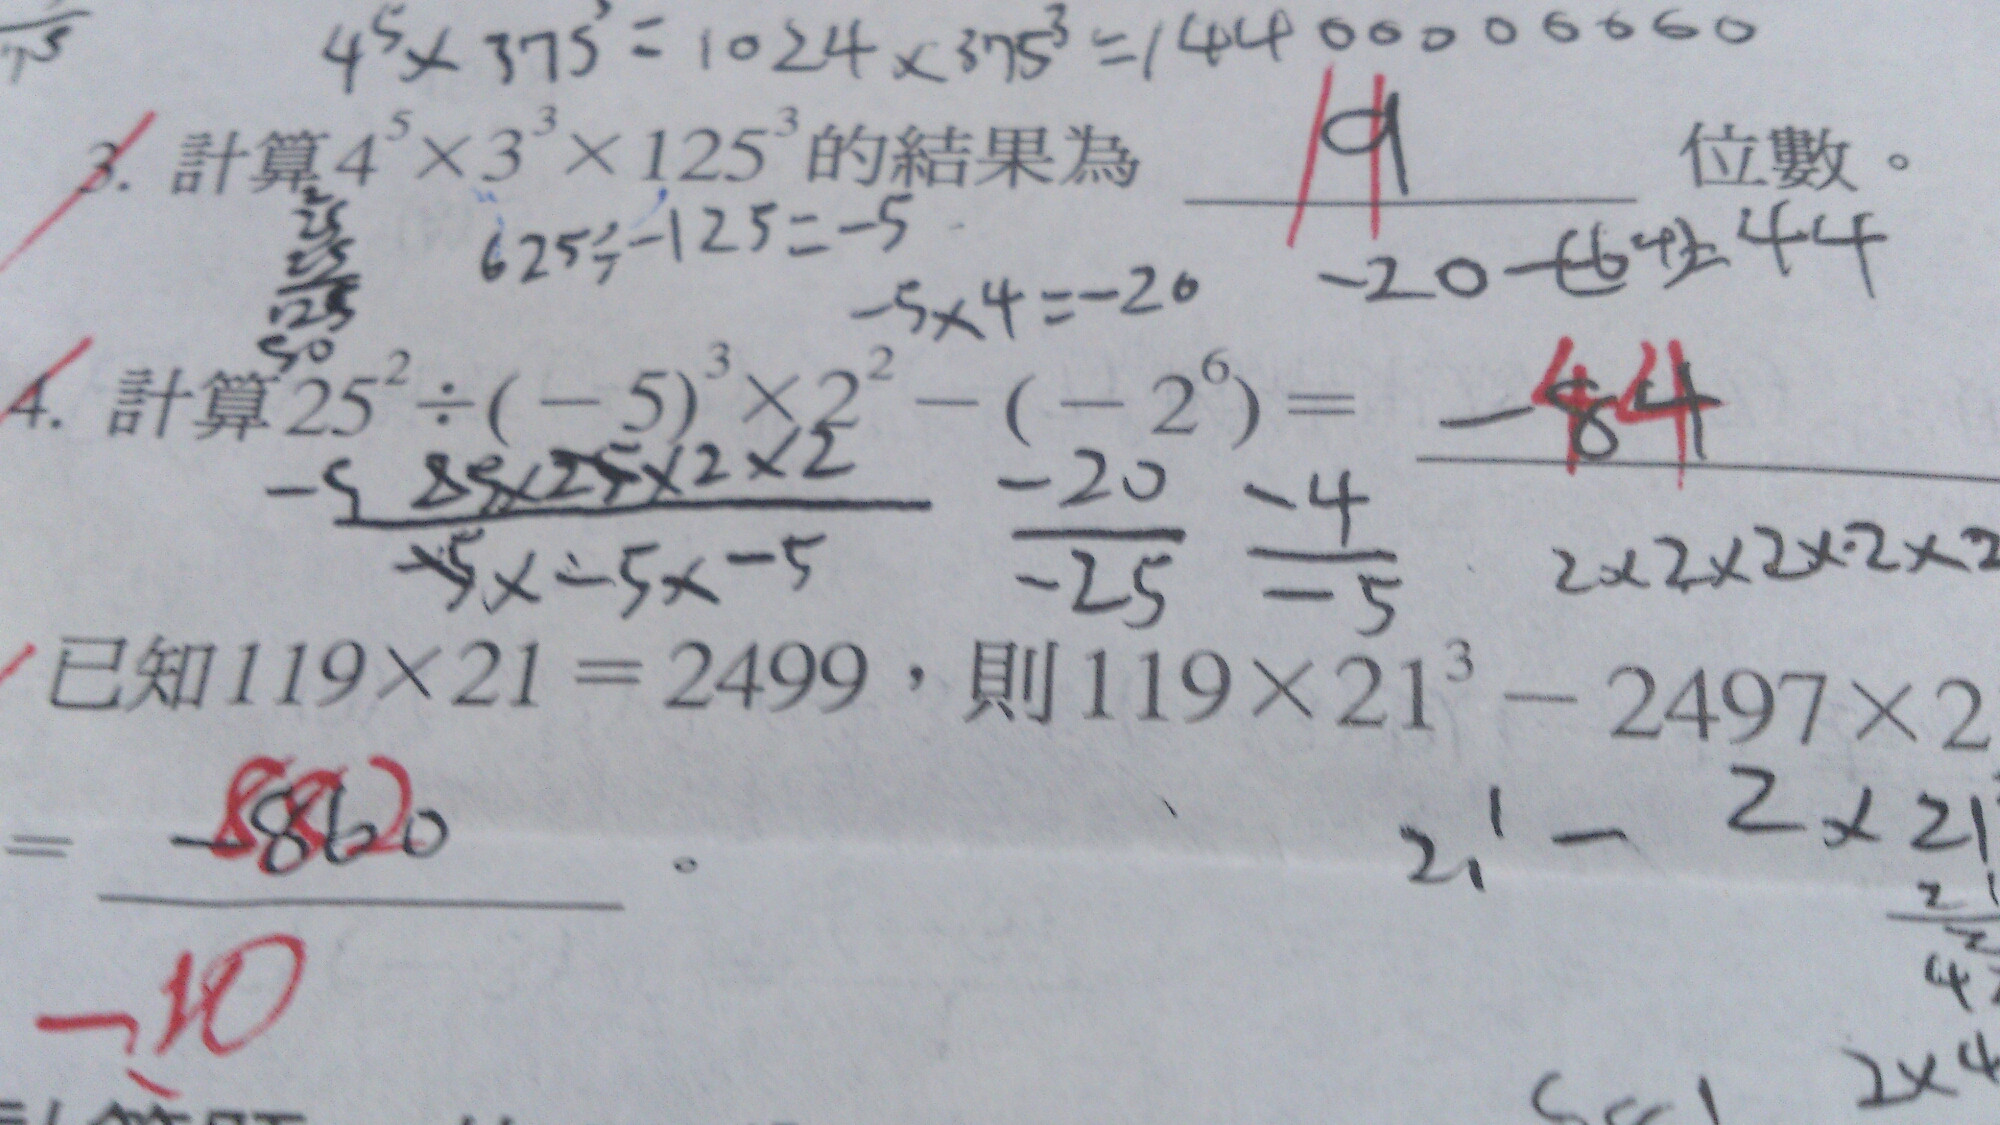 4⁵×375³=1024×375³=14400000000
3. 計算4⁵×3³×125³的結果為 11 位數。
625÷-125=-5
-5×4=-20
-20-(-64)=44
25
25
125
50
4. 計算25²÷(-5)³×2²-(-2⁶)= 44
-5 25×25×2×2
-5×-5×-5
-20
-25
-4
-5
2×2×2×2×2
已知119×21=2499,則119×21³-2497×2
= 882 。
21¹- 2×21
-10
2×4